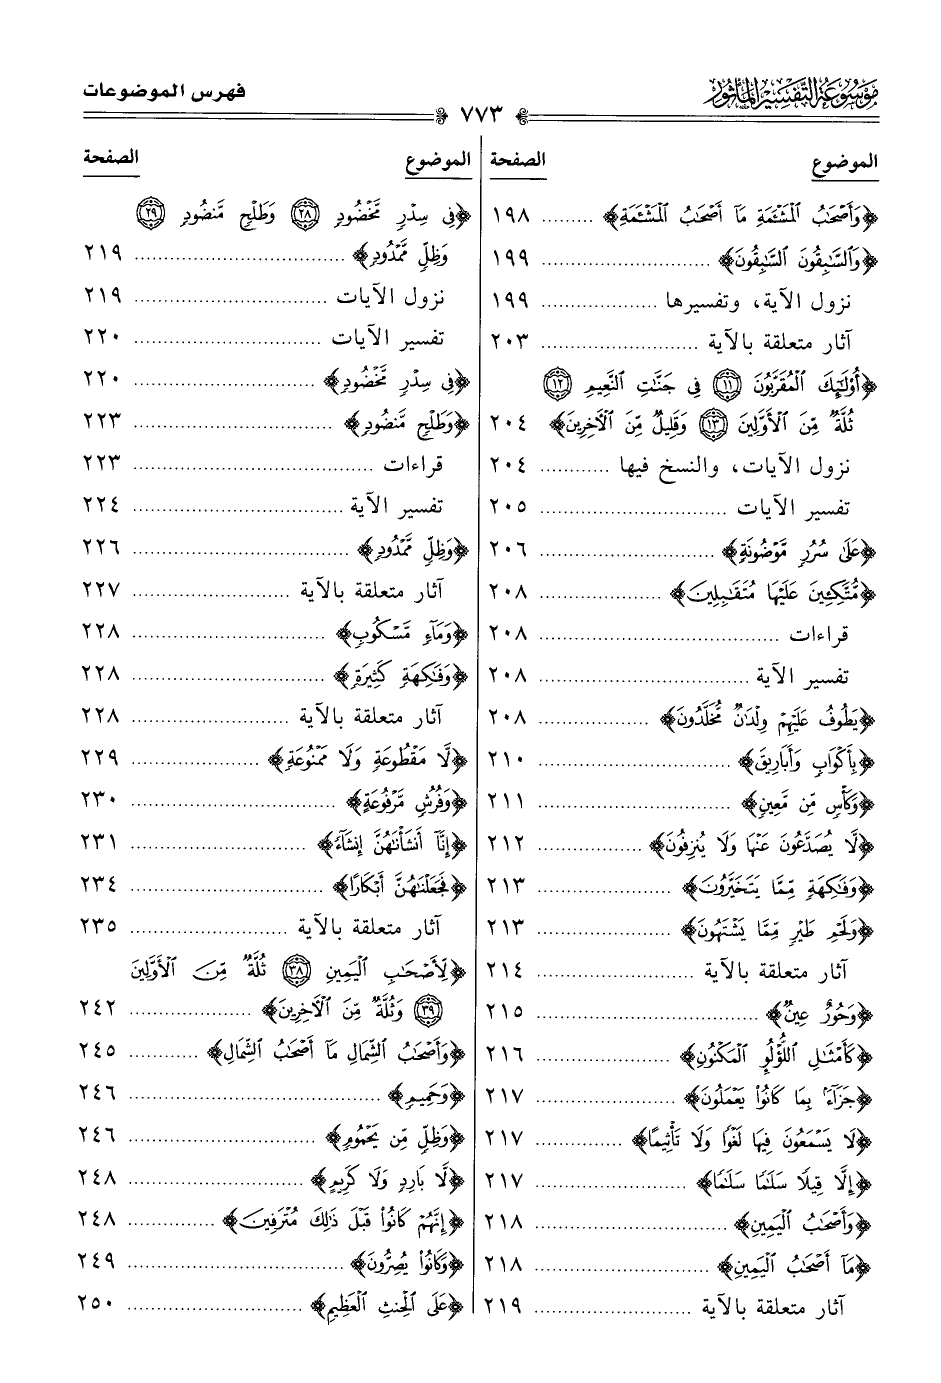 موسوعة التفسير المأثور
فهرس الموضوعات
٧٧٣
الموضوع الصفحة
﴿وَأَصْحَٰبُ ٱلْمَشْـَٔمَةِ مَآ أَصْحَٰبُ ٱلْمَشْـَٔمَةِ﴾ ......... ١٩٨
﴿وَٱلسَّٰبِقُونَ ٱلسَّٰبِقُونَ﴾ ......... ١٩٩
نزول الآية، وتفسيرها ......... ١٩٩
آثار متعلقة بالآية ......... ٢٠٣
﴿أُو۟لَٰٓئِكَ ٱلْمُقَرَّبُونَ ١١ فِى جَنَّٰتِ ٱلنَّعِيمِ ١٢
ثُلَّةٌ مِّنَ ٱلْأَوَّلِينَ ١٣ وَقَلِيلٌ مِّنَ ٱلْـَٔاخِرِينَ﴾ ٢٠٤
نزول الآيات، والنسخ فيها ......... ٢٠٤
تفسير الآيات ......... ٢٠٥
﴿عَلَىٰ سُرُرٍ مَّوْضُونَةٍ﴾ ......... ٢٠٦
﴿مُّتَّكِـِٔينَ عَلَيْهَا مُتَقَٰبِلِينَ﴾ ......... ٢٠٨
قراءات ......... ٢٠٨
تفسير الآية ......... ٢٠٨
﴿يَطُوفُ عَلَيْهِمْ وِلْدَٰنٌ مُّخَلَّدُونَ﴾ ......... ٢٠٨
﴿بِأَكْوَابٍ وَأَبَارِيقَ﴾ ......... ٢١٠
﴿وَكَأْسٍ مِّن مَّعِينٍ﴾ ......... ٢١١
﴿لَّا يُصَدَّعُونَ عَنْهَا وَلَا يُنزِفُونَ﴾ ......... ٢١٢
﴿وَفَٰكِهَةٍ مِّمَّا يَتَخَيَّرُونَ﴾ ......... ٢١٣
﴿وَلَحْمِ طَيْرٍ مِّمَّا يَشْتَهُونَ﴾ ......... ٢١٣
آثار متعلقة بالآية ......... ٢١٤
﴿وَحُورٌ عِينٌ﴾ ......... ٢١٥
﴿كَأَمْثَٰلِ ٱللُّؤْلُؤِ ٱلْمَكْنُونِ﴾ ......... ٢١٦
﴿جَزَآءًۢ بِمَا كَانُوا۟ يَعْمَلُونَ﴾ ......... ٢١٧
﴿لَا يَسْمَعُونَ فِيهَا لَغْوًا وَلَا تَأْثِيمًا﴾ ......... ٢١٧
﴿إِلَّا قِيلًا سَلَٰمًا سَلَٰمًا﴾ ......... ٢١٧
﴿وَأَصْحَٰبُ ٱلْيَمِينِ﴾ ......... ٢١٨
﴿مَآ أَصْحَٰبُ ٱلْيَمِينِ﴾ ......... ٢١٨
آثار متعلقة بالآية ......... ٢١٩
الموضوع الصفحة
﴿فِى سِدْرٍ مَّخْضُودٍ ٢٨ وَطَلْحٍ مَّنضُودٍ ٢٩
وَظِلٍّ مَّمْدُودٍ﴾ ......... ٢١٩
نزول الآيات ......... ٢١٩
تفسير الآيات ......... ٢٢٠
﴿فِى سِدْرٍ مَّخْضُودٍ﴾ ......... ٢٢٠
﴿وَطَلْحٍ مَّنضُودٍ﴾ ......... ٢٢٣
قراءات ......... ٢٢٣
تفسير الآية ......... ٢٢٤
﴿وَظِلٍّ مَّمْدُودٍ﴾ ......... ٢٢٦
آثار متعلقة بالآية ......... ٢٢٧
﴿وَمَآءٍ مَّسْكُوبٍ﴾ ......... ٢٢٨
﴿وَفَٰكِهَةٍ كَثِيرَةٍ﴾ ......... ٢٢٨
آثار متعلقة بالآية ......... ٢٢٨
﴿لَّا مَقْطُوعَةٍ وَلَا مَمْنُوعَةٍ﴾ ......... ٢٢٩
﴿وَفُرُشٍ مَّرْفُوعَةٍ﴾ ......... ٢٣٠
﴿إِنَّآ أَنشَأْنَٰهُنَّ إِنشَآءً﴾ ......... ٢٣١
﴿فَجَعَلْنَٰهُنَّ أَبْكَارًا﴾ ......... ٢٣٤
آثار متعلقة بالآية ......... ٢٣٥
﴿لِّأَصْحَٰبِ ٱلْيَمِينِ ٣٨ ثُلَّةٌ مِّنَ ٱلْأَوَّلِينَ
٣٩ وَثُلَّةٌ مِّنَ ٱلْـَٔاخِرِينَ﴾ ......... ٢٤٢
﴿وَأَصْحَٰبُ ٱلشِّمَالِ مَآ أَصْحَٰبُ ٱلشِّمَالِ﴾ ......... ٢٤٥
﴿وَحَمِيمٍ﴾ ......... ٢٤٦
﴿وَظِلٍّ مِّن يَحْمُومٍ﴾ ......... ٢٤٦
﴿لَّا بَارِدٍ وَلَا كَرِيمٍ﴾ ......... ٢٤٨
﴿إِنَّهُمْ كَانُوا۟ قَبْلَ ذَٰلِكَ مُتْرَفِينَ﴾ ......... ٢٤٨
﴿وَكَانُوا۟ يُصِرُّونَ﴾ ......... ٢٤٩
﴿عَلَى ٱلْحِنثِ ٱلْعَظِيمِ﴾ ......... ٢٥٠